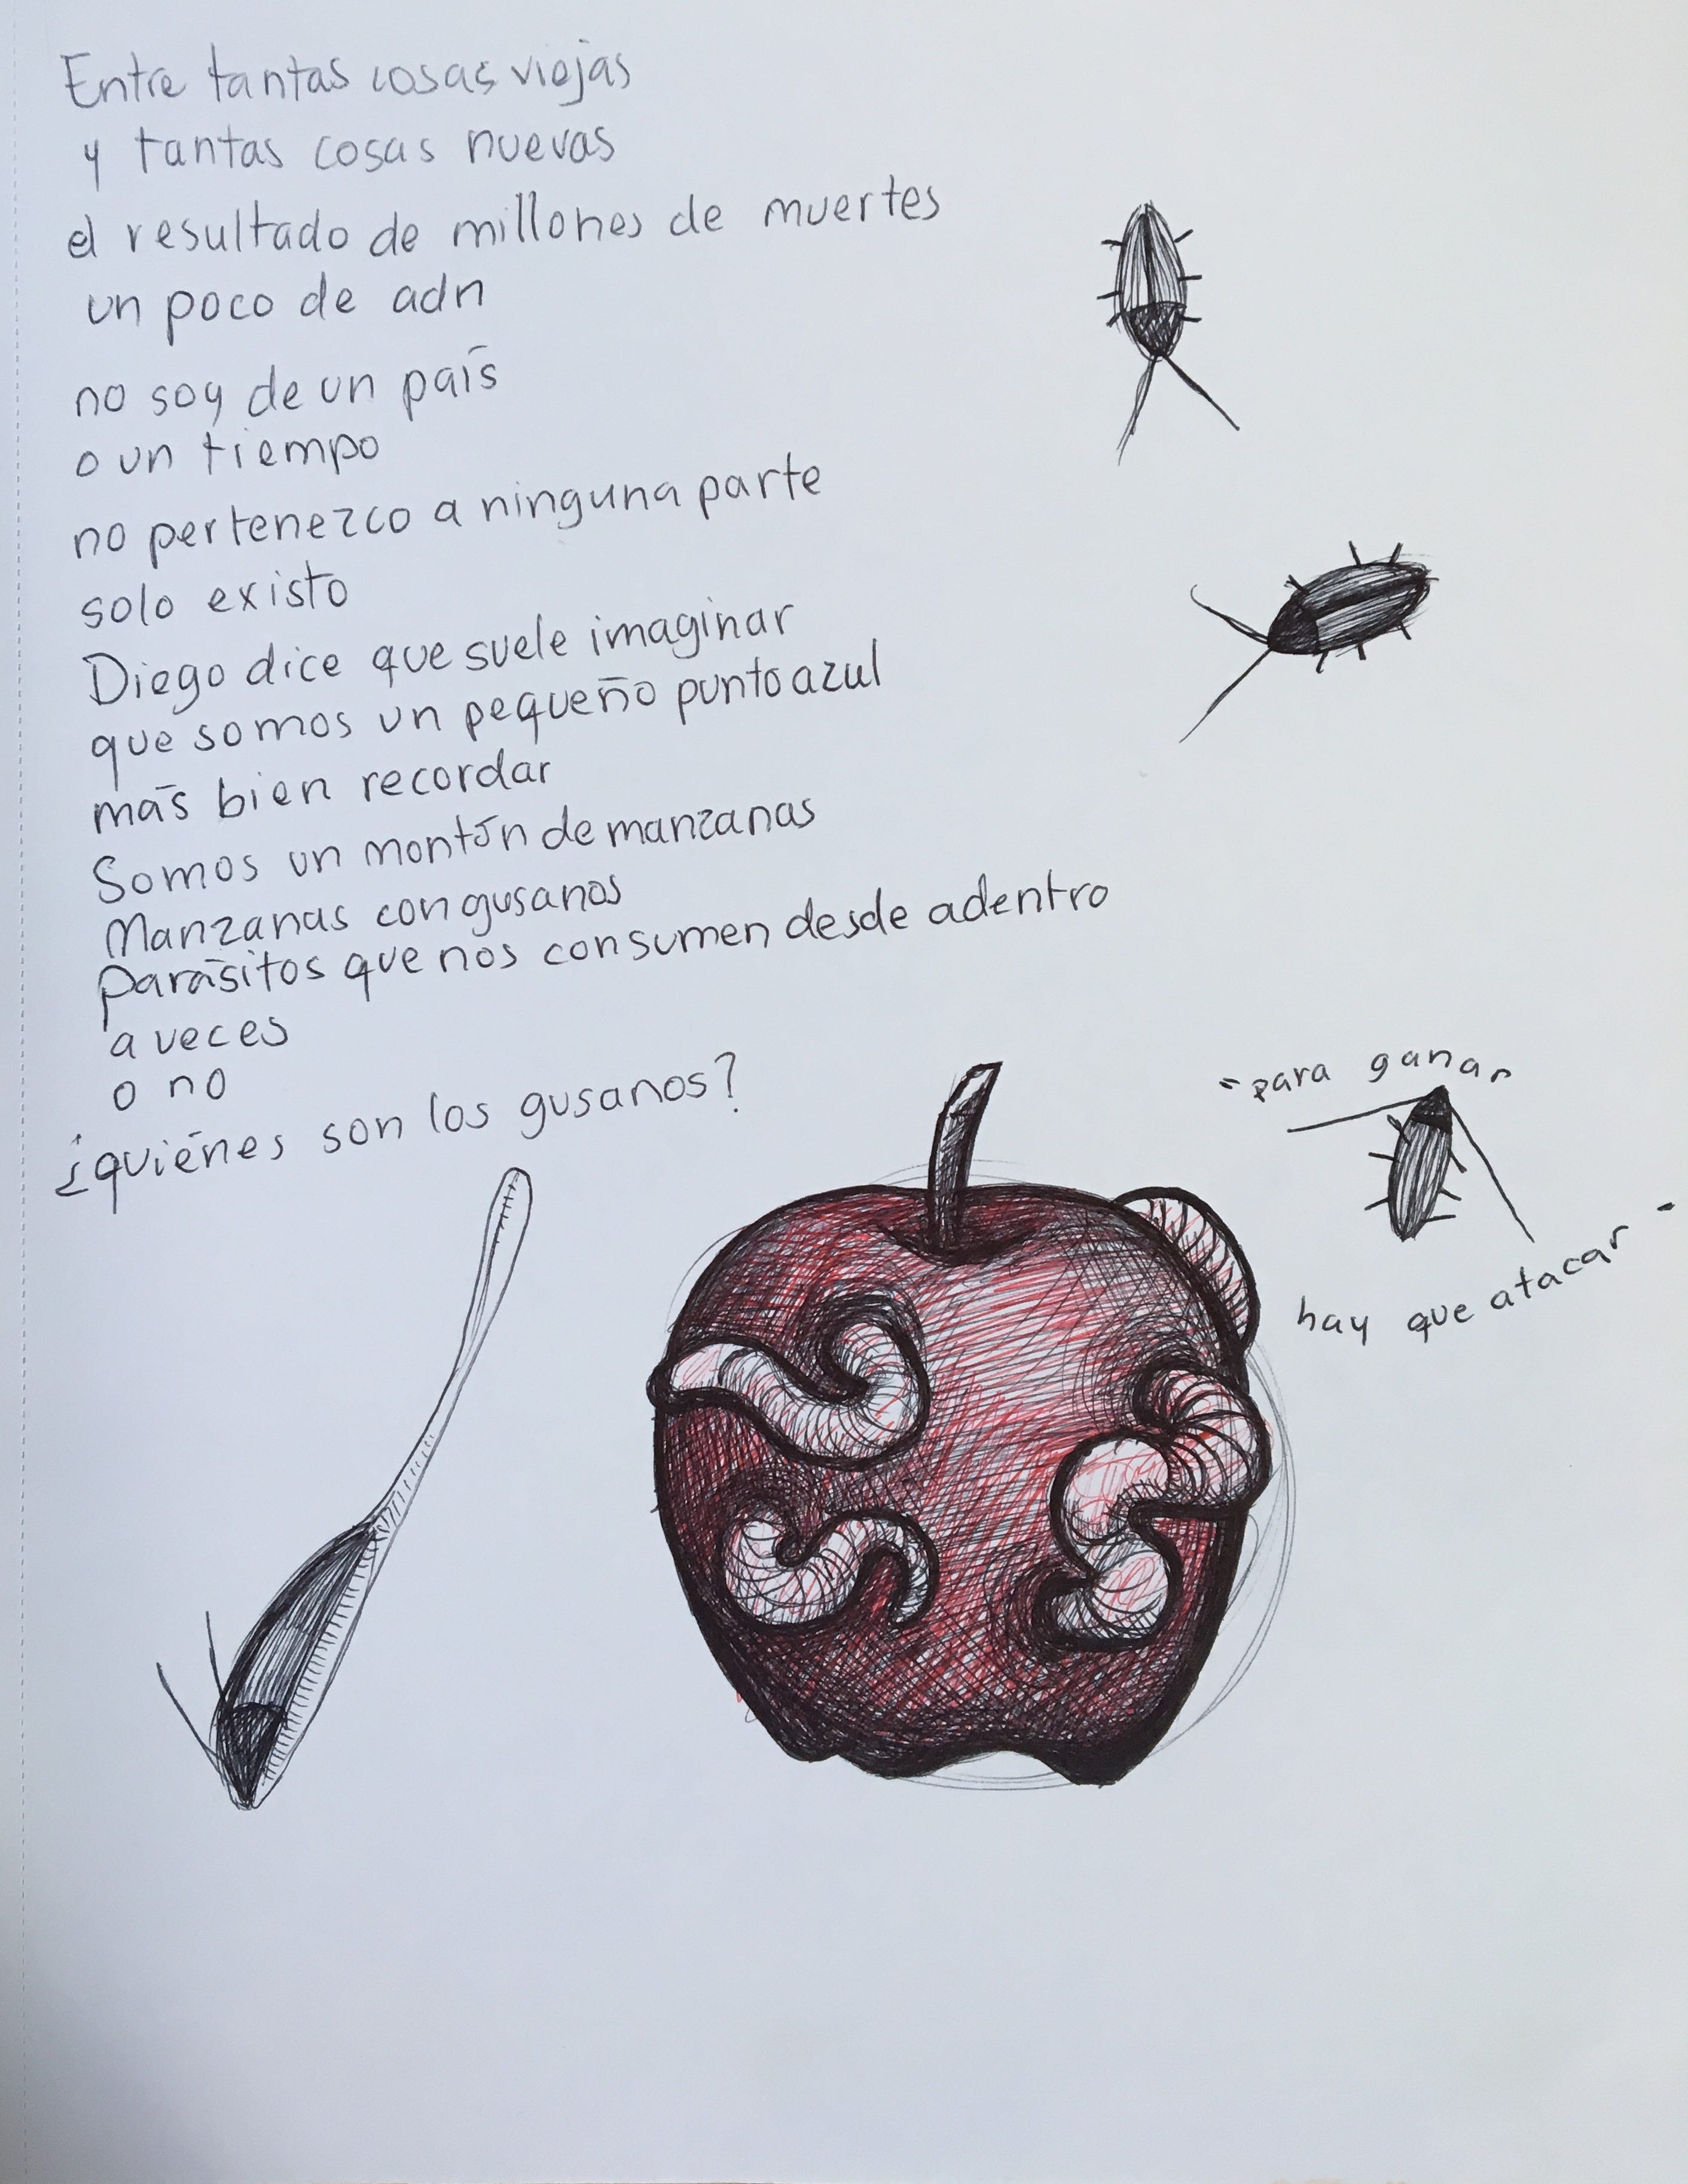 Entre tantas cosas viejas
y tantas cosas nuevas
el resultado de millones de muertes
un poco de adn
no soy de un país
o un tiempo
no pertenezco a ninguna parte
solo existo
Diego dice que suele imaginar
que somos un pequeño punto azul
más bien recordar
Somos un montón de manzanas
Manzanas con gusanos
Parásitos que nos consumen desde adentro
a veces
o no
¿quiénes son los gusanos?
-para ganar
hay que atacar-